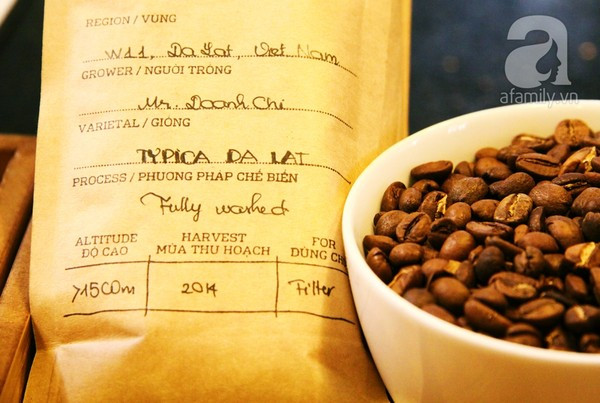 REGION / VÙNG
W11, Da Lat, Viet Nam
GROWER / NGƯỜI TRỒNG
Mr. Doanh Chi
VARIETAL / GIỐNG
TYPICA DA LAT
PROCESS / PHƯƠNG PHÁP CHẾ BIẾN
Fully washed
ALTITUDE HARVEST FOR
ĐỘ CAO MÙA THU HOẠCH DÙNG CH
>1500m 2014 Filter
a
afamily.vn